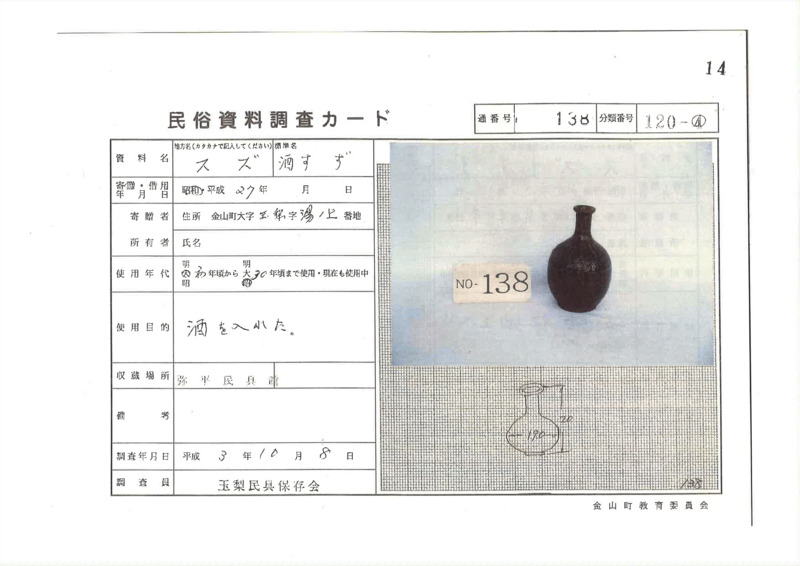 14
民俗資料調査カード
通番号 138 分類番号 120-④
資料名 地方名(カタカナで記入してください) スズ 標準名 酒すず
寄贈・借用年月日 昭和・平成 27年 月 日
寄贈者 住所 金山町大字玉梨字湯ノ上 番地
所有者 氏名
使用年代 明 大 昭 初年頃から 明 大 昭 30年頃まで使用・現在も使用中
使用目的 酒を入れた。
収蔵場所 弥平民具館
備考
調査年月日 平成 3年 10月 8日
調査員 玉梨民具保存会
NO-138
20
190
138
金山町教育委員会